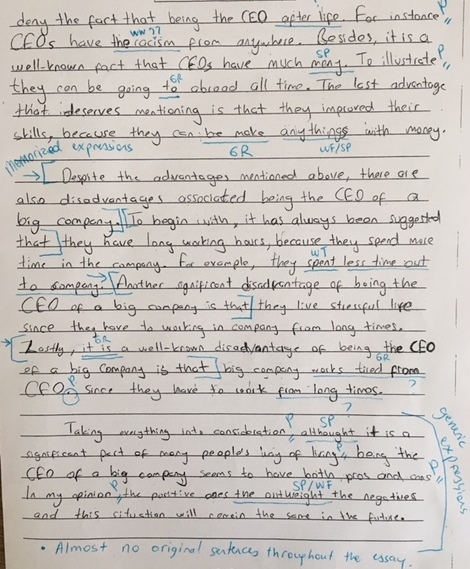 deny the fact that being the CEO after life. For instance P
ww??
CEOs have the racism from anywhere. Besides, it is a
SP P
well-known fact that CEOs have much mony. To illustrate
GR
they can be going to abroad all time. The last advantage
that deserves mentioning is that they improved their
skills, because they can be make anythings with money.
Memorized expressions GR WF/SP
Despite the advantages mentioned above, there are
also disadvantages associated being the CEO of a
big company. To begin with, it has always been suggested
that they have long working hours, because they spend more
WT
time in the company. For example, they spent less time out
to company. Another significant disadvantage of being the
CEO of a big company is that they live stressful life
since they have to working in company from long times.
GR
Lastly, it is a well-known disadvantage of being the CEO
GR
of a big company is that big company works tired from
P ?
CEO. Since they have to work from long times.
?
P SP
Taking everything into consideration althought it is a
P
significant part of many people's way of living, being the
CEO of a big company seams to have both pros and cons
P SP/WF
In my opinion, the positive ones the outweight the negatives
and this situation will remain the same in the future.
generic expressions
• Almost no original sentences throughout the essay.